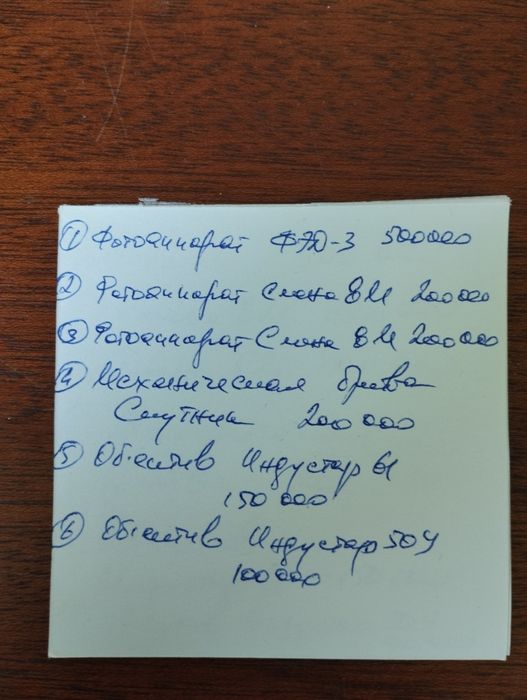 ① Фотоаппарат ФЭД-3 500000
② Фотоаппарат Смена 8М 200000
③ Фотоаппарат Смена 8М 200000
④ Механическая бритва
Спутник 200000
⑤ Объектив Индустар 61
150000
⑥ Объектив Индустар 50У
100000